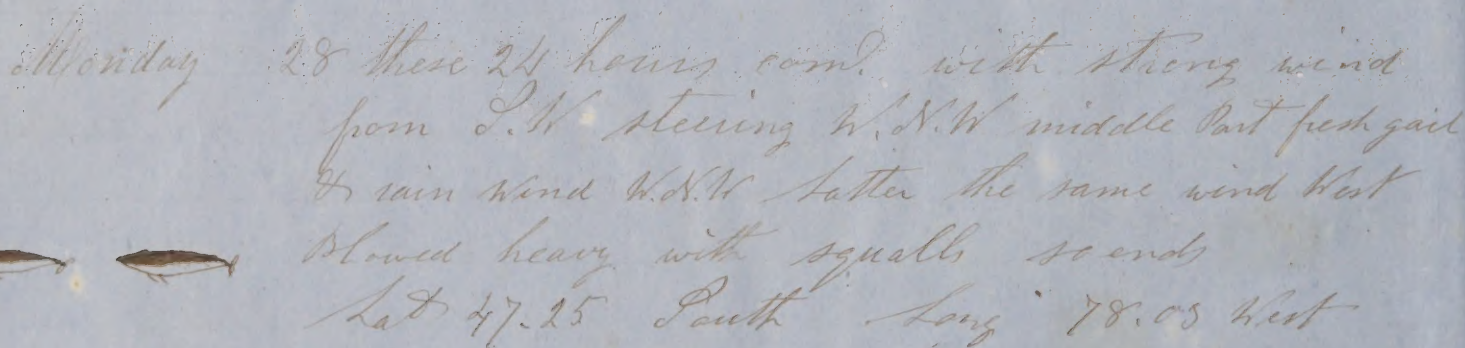 Monday 28 these 24 hours comd. with strong wind
from S.W steering W.N.W middle Part fresh gail
& rain wind W.N.W Latter the same wind West
Blowed heavy with squalls so ends
Lat 47.25 South Long 78.03 West